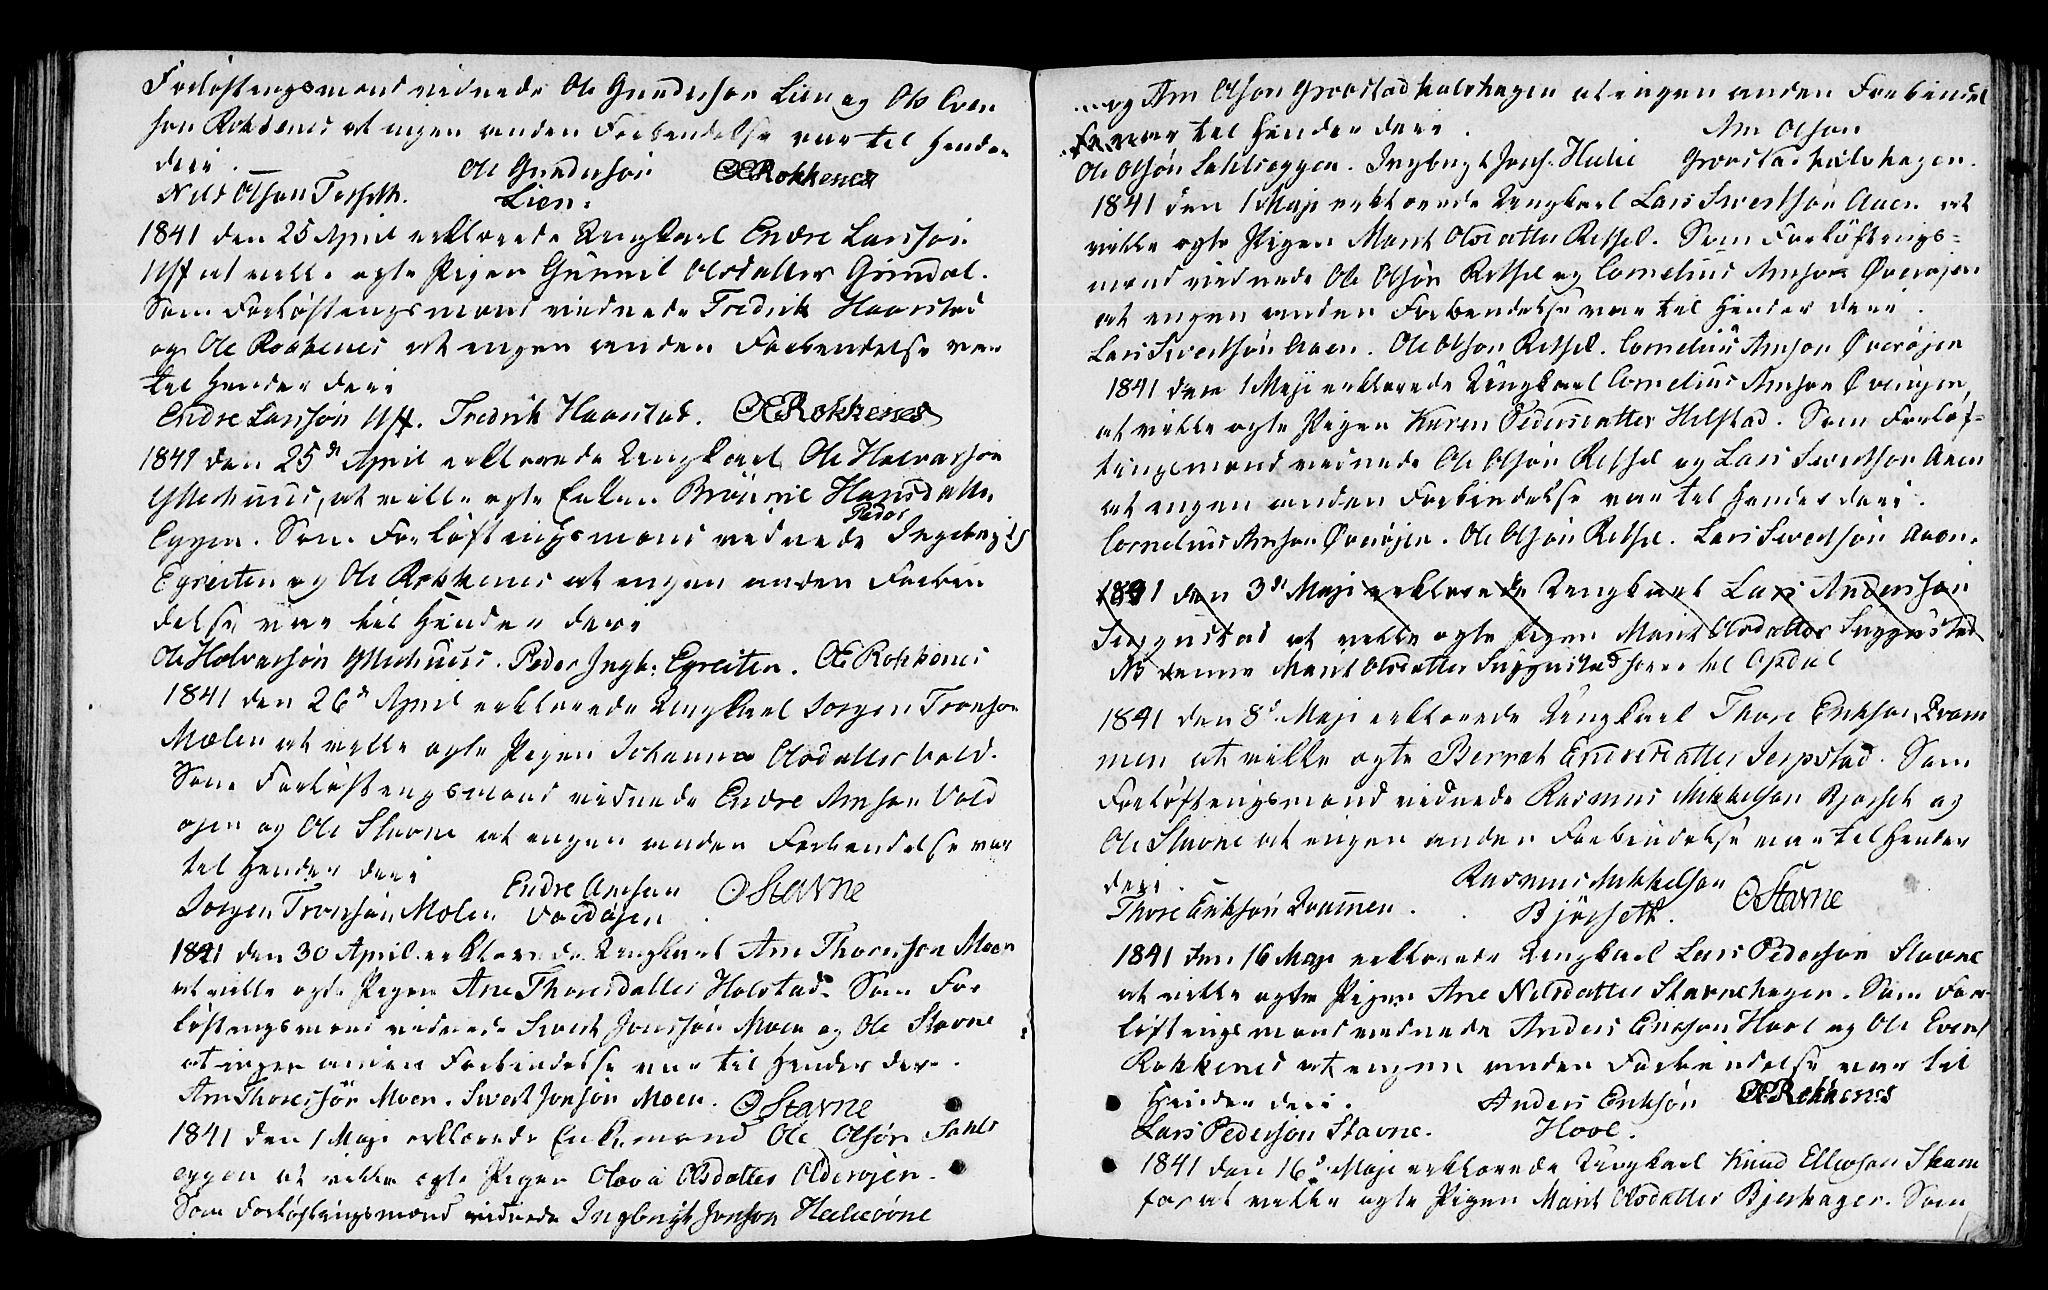 Forløftengsmand vidnede Ole Gunderson Lien og Ole Even
son Rokkenes at ingen anden Forbendelse var til Hender
deri.
Ole Gunderson OERokkenes
Nils Olson Forseth. Lien.
1841 den 25 April erklærede Ungkarl Endre Larsson
Uff at ville egte Pigen Gunnil Olsdatter Grindal.
Som Forløftengsmand vidnede Fredrik Haarstad
og Ole Rokkenes at ingen anden Forbendelse var
til Hender deri
Endre Larsson Uff. Fredrik Haarstad. OERokkenes
1841 den 25de April erklærede Ungkarl Ole Halvorson
Mehuus, at ville egte Enken Brønnil Hansdatter
Peder
Eggen. Som Forløftengsmand vidnede Ingebrigts
Egreiten og Ole Rokkenes at ingen anden Forben
delse var til Hinder deri
Ole Halvorson Mehuus. Peder Ingb. Egreiten. OE Rokkenes
1841 den 26de April erklærede Ungkarl Jørgen Tronson
Mælen at ville egte Pigen Johanna Olsdatter Vold.
Som Forløftengsmand vidnede Endre Arnson Vold
øjen og Ole Stavne at ingen anden Forbendelse var
til Hender deri
Endre Arnson OStavne
Jørgen Tronson Mælen Voldøjen
1841 den 30 April erklærede Ungkarl Arn Thoresson Moen
at ville egte Pigen Ane Thoresdatter Holstad. Som For
løftengsmand vidnede Sivert Jonsson Moen og Ole Stavne
at ingen anden Forbindelse var til Hender deri.
Arn Thoresson Moen. Sivert Jonson Moen. OStavne
1841 den 1 Maji erklærede Enkemand Ole Olsøn Sahls
eggen at ville egte Pigen Olava Olsdatter Olderøjen.
Som Forløftengsmand vidnede Ingbrigt Jonson Helieøvne
og Arn Olson Grovstadhalvhagen at ingen anden Forbindel
se var til Hinder deri.
Arn Olson
Ole Olsøn Sahlseggen. Ingbrigt Jons. Helie Grovstadhalvhagen.
1841 den 1 Maji erklærede Ungkarl Lars Sivertsøn Aaen at
ville egte Pigen Marit Olsdatter Rethsel. Som Forløftengs-
mand vidnede Ole Olsøn Rethsel og Cornelius Arnson Øverøjen
at engen anden Forbendelse var til Hender deri.
Lars Sivertsøn Aaen. Ole Olson Rethsel. Cornelius Arnson Øverøjen
1841 den 1 Maji erklærede Ungkarl Cornelius Arnson Øverøjen,
at ville egte Pigen Karen Pedersdatter Helstad. Som Forløf-
tingsmand vidnede Ole Olsøn Rethsel og Lars Sivertson Aaen
at engen anden Forbindelse var til Hender deri.
Cornelius Arnson Øverøjen. Ole Olson Rethsel. Lars Sivertson Aaen.
1841 den 3de Maji erklærede Ungkarl Lars Anderson
Siggustad at ville egte Pigen Marit Olsdatter Siggustad
NB denne Marit Olsdatter Siggustad hører til Opdal
1841 den 8de Maji erklærede Ungkarl Thore Erikson Dram
men at ville egte Berrat Endresdatter Jerpstad. Som
Forløftengsmand vidnede Rasmus Mikkelson Bjørset og
Ole Stavne at engen anden Forbindelse var til Hender
deri.
Rasmus Mikkelson OStavne
Thore Erikson Drammen. Bjørseth.
1841 den 16 Maji erklærede Ungkarl Lars Pederson Stavne
at ville egte Pigen Ane Nilsdatter Stavnehagen. Som For-
løftengsmand vidnede Anders Ericson Hool og Ole Evens
Rokkenes at engen anden Forbendelse var til
Hender deri.
Anders Erikson OERokkenes
Lars Pederson Stavne. Hool.
1841 den 16de Maji erklærede Ungkarl Knud Ellevson Skam
for at ville egte Pigen Marit Olsdatter Bjerkager. Som